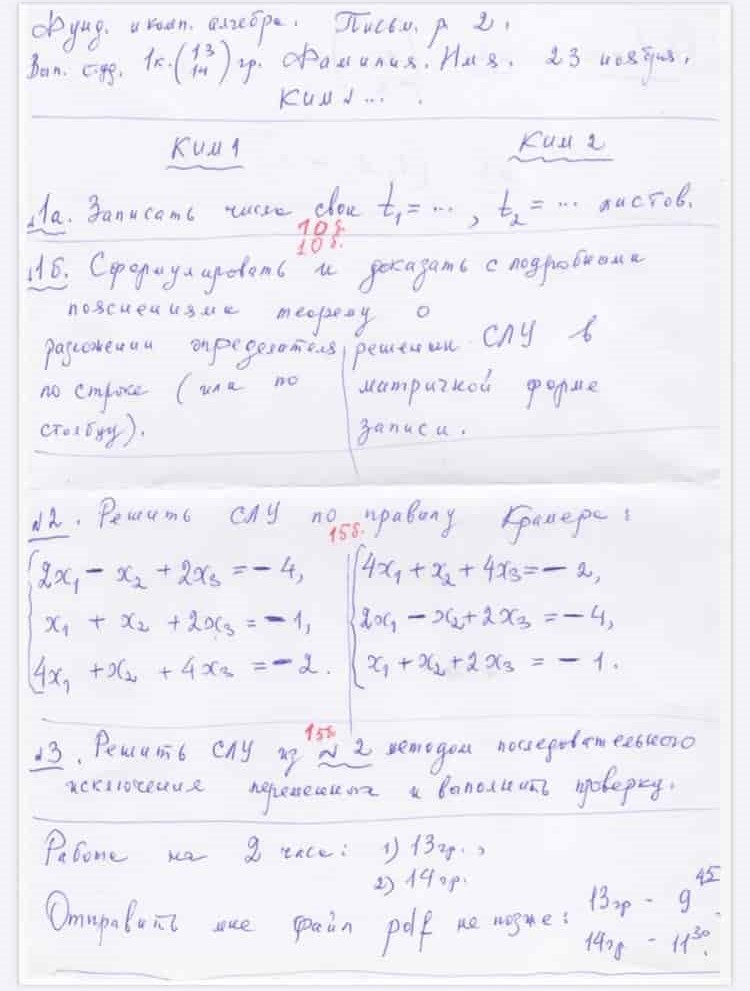 Фунд. и комп. алгебра. Письм. р 2.
Вып. студ. 1к. (13 14) гр. Фамилия. Имя. 23 ноября.
КИМ № ... .
КИМ 1
КИМ 2
№1а. Записать числа свои t₁ = ... , t₂ = ... листов.
10 б.
10 б.
№1б. Сформулировать и доказать с подробными
пояснениями теорему о
разложении определителя
по строке (или по
столбцу).
решении СЛУ в
матричной форме
записи.
№2. Решить СЛУ по правилу Крамера:
15б.
2x₁ - x₂ + 2x₃ = - 4,
x₁ + x₂ + 2x₃ = - 1,
4x₁ + x₂ + 4x₃ = - 2.
4x₁ + x₂ + 4x₃ = - 2,
2x₁ - x₂ + 2x₃ = - 4,
x₁ + x₂ + 2x₃ = - 1.
15б
№3. Решить СЛУ из №2 методом последовательного
исключения переменных и выполнить проверку.
Работа на 2 часа: 1) 13гр.,
2) 14гр.
Отправить мне файл pdf не позже: 13гр - 9⁴⁵
14гр - 11³⁰.